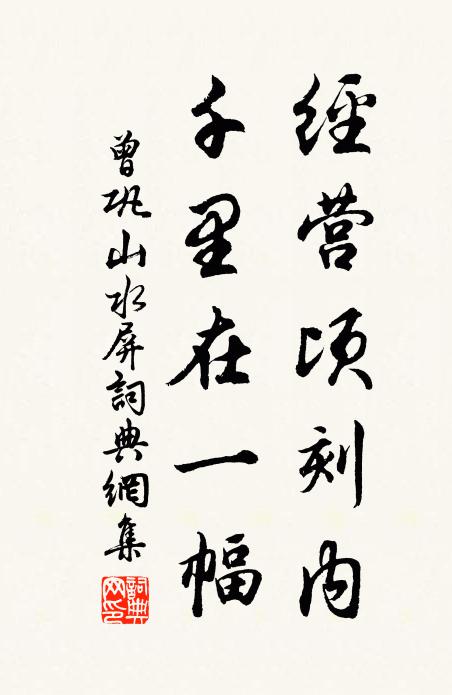 經营頃刻内
千里在一幅
曾巩山水屏詞典網集
詞典网印